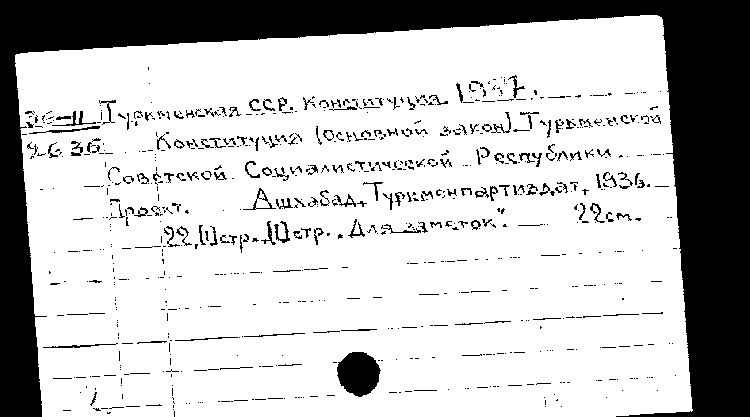 36-11 Туркменская ССР. Конституция. 1937.
2636 Конституция (основной закон) Туркменской
Советской Социалистической Республики.
Проект. Ашхабад, Туркменпартиздат, 1936.
22,[1]стр.,[1]стр. „Для заметок". — 22см.